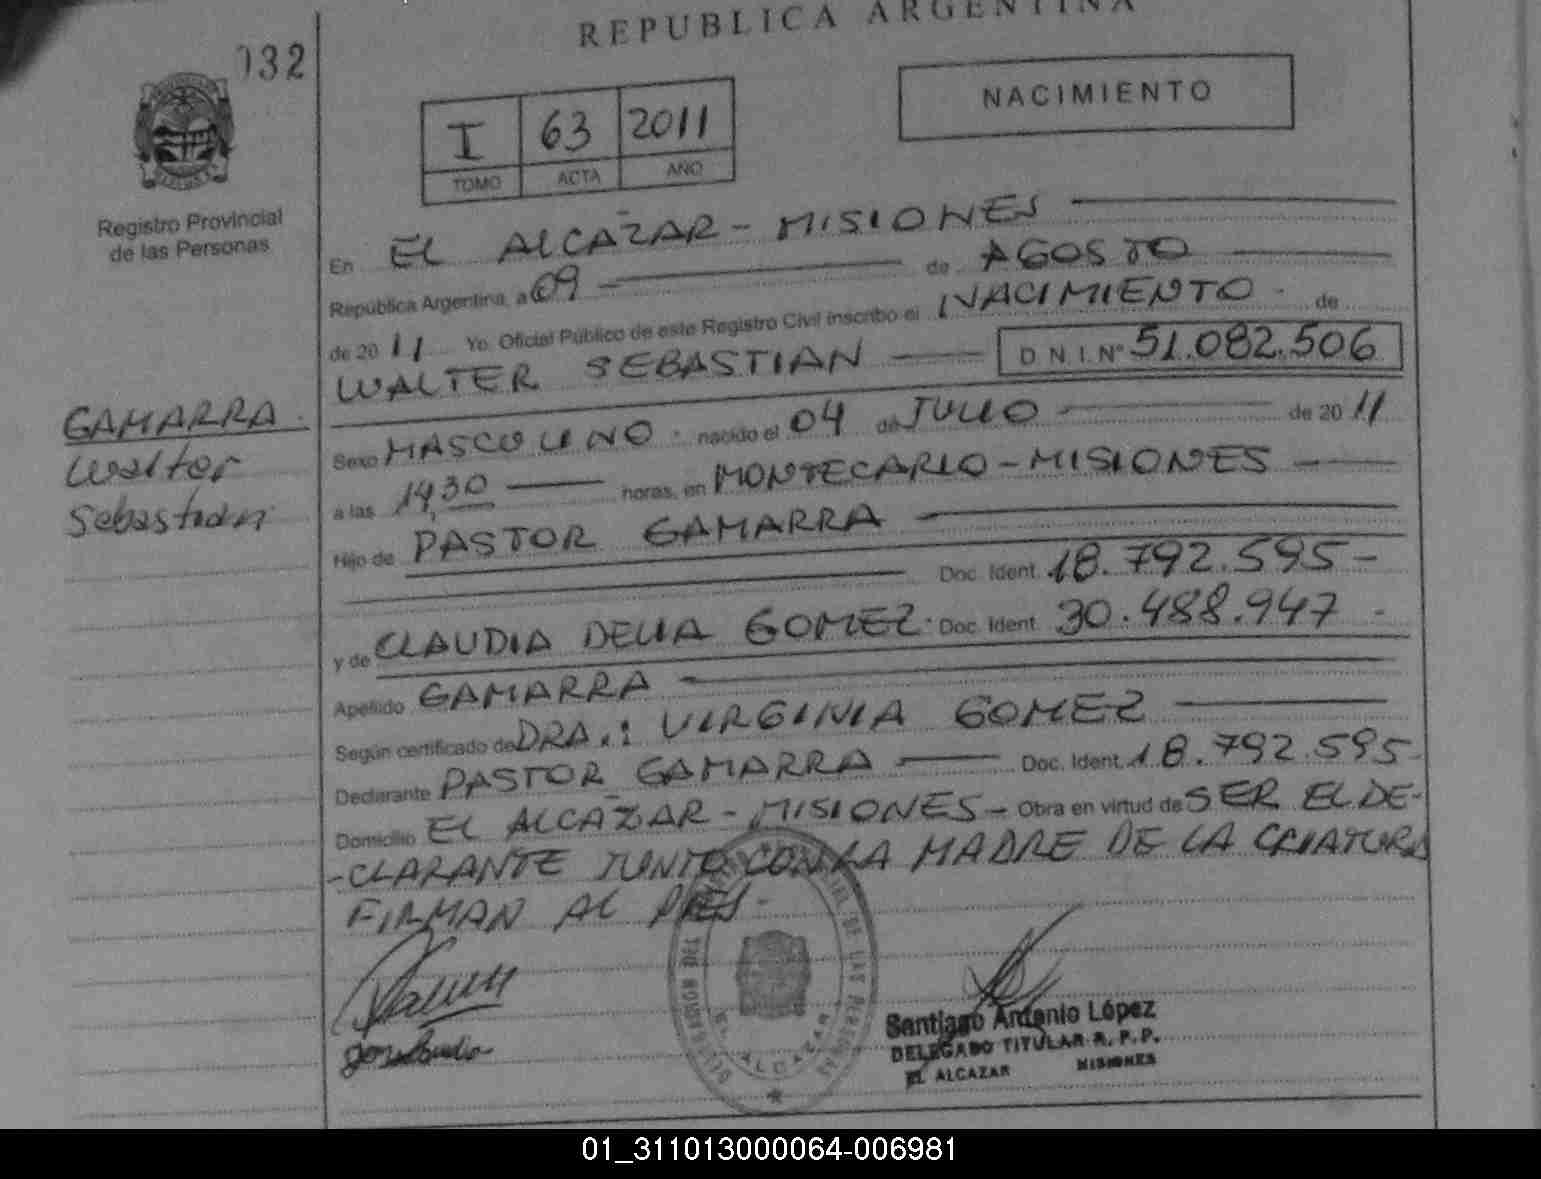 REPUBLICA ARGENTINA
132
NACIMIENTO
I 63 2011
TOMO ACTA AÑO
Registro Provincial
de las Personas
En EL ALCAZAR - MISIONES
República Argentina, a 09 de AGOSTO
de 2011 Yo, Oficial Público de este Registro Civil inscribo el NACIMIENTO de
WALTER SEBASTIAN D N I. Nº 51.082.506
GAMARRA.
Walter
Sebastian
Sexo MASCULINO. nacido el 04 de JULIO de 2011
a las 14,30 horas, en MONTECARLO - MISIONES
Hijo de PASTOR GAMARRA
Doc. Ident. 18.792.595-
y de CLAUDIA DELIA GOMEZ. Doc. Ident. 30.488.947 -
Apellido GAMARRA
Según certificado de DRA.: VIRGINIA GOMEZ
Declarante PASTOR GAMARRA Doc. Ident. 18.792.595-
Domicilio EL ALCAZAR - MISIONES - Obra en virtud de SER EL DE-
-CLARANTE JUNTO CON LA MADRE DE LA CRIATURA
FIRMAN AL PIES.-
Santiago Antonio López
DELEGADO TITULAR R. P. P.
EL ALCAZAR MISIONES
01_311013000064-006981